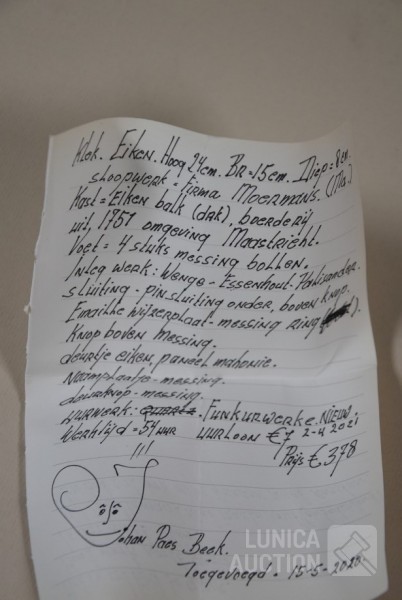 Klok. Eiken. Hoog 24cm. BR=15cm. Diep=8cm.
sloopwerk - Firma Moermans. (Ms.)
Kast=Eiken balk (dak), boerderij
uit, 1751 omgeving Maastricht.
Voet = 4 stuks messing bollen.
Inleg werk: Wenge - Essenhout - Palissander.
sluiting - pin sluiting onder, boven knop.
Emaille wijzerplaat - messing ring
Knop boven messing.
deurtje eiken, paneel mahonie.
Naamplaatje - messing.
deurknop - messing.
uurwerk: Quartz. Funkurwerke. Nieuw
Werktijd = 54 uur uurloon €7 2-4 2021
!!! Prijs € 378
Johan Paes Beek.
Toegevoegd - 15-5-2025
LUNICA
AUCTION